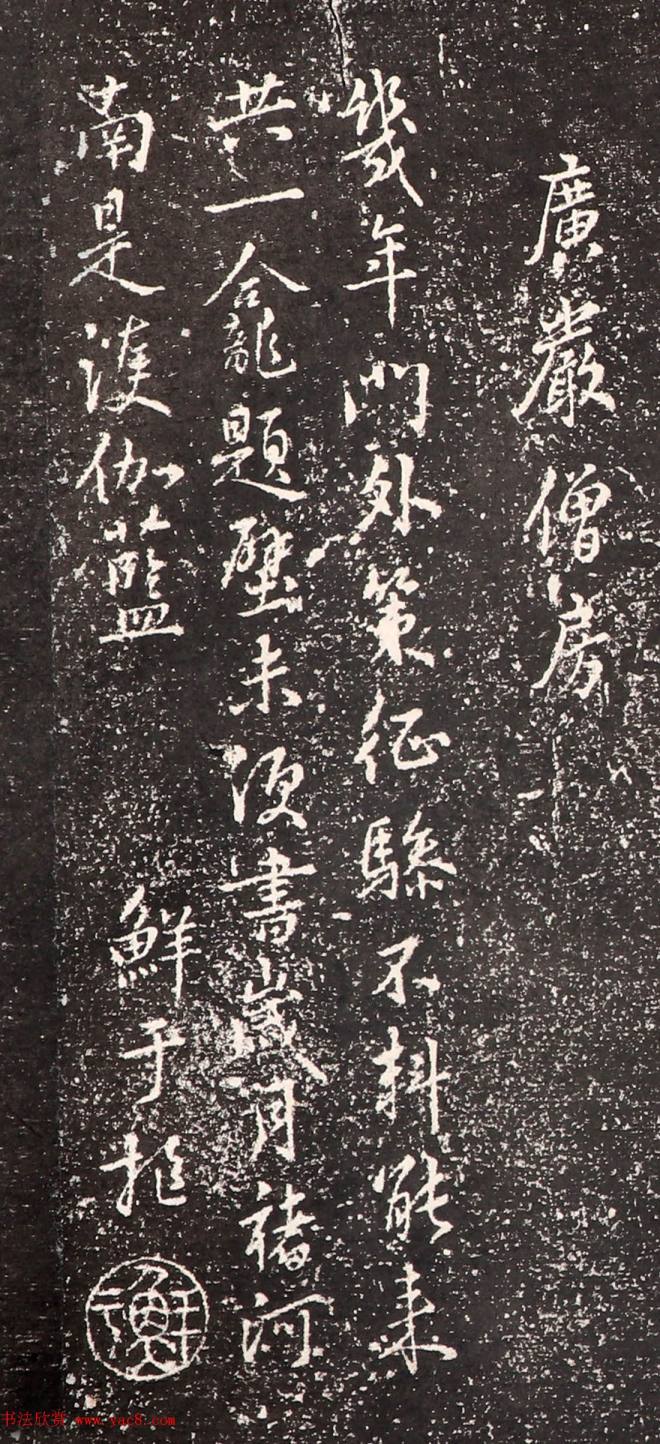 廣嚴僧房
幾年門外策征驂不料能来
共一龕題壁未須書歲月褚河
南是護伽藍
鮮于枢
书法欣赏 www.yac8.com